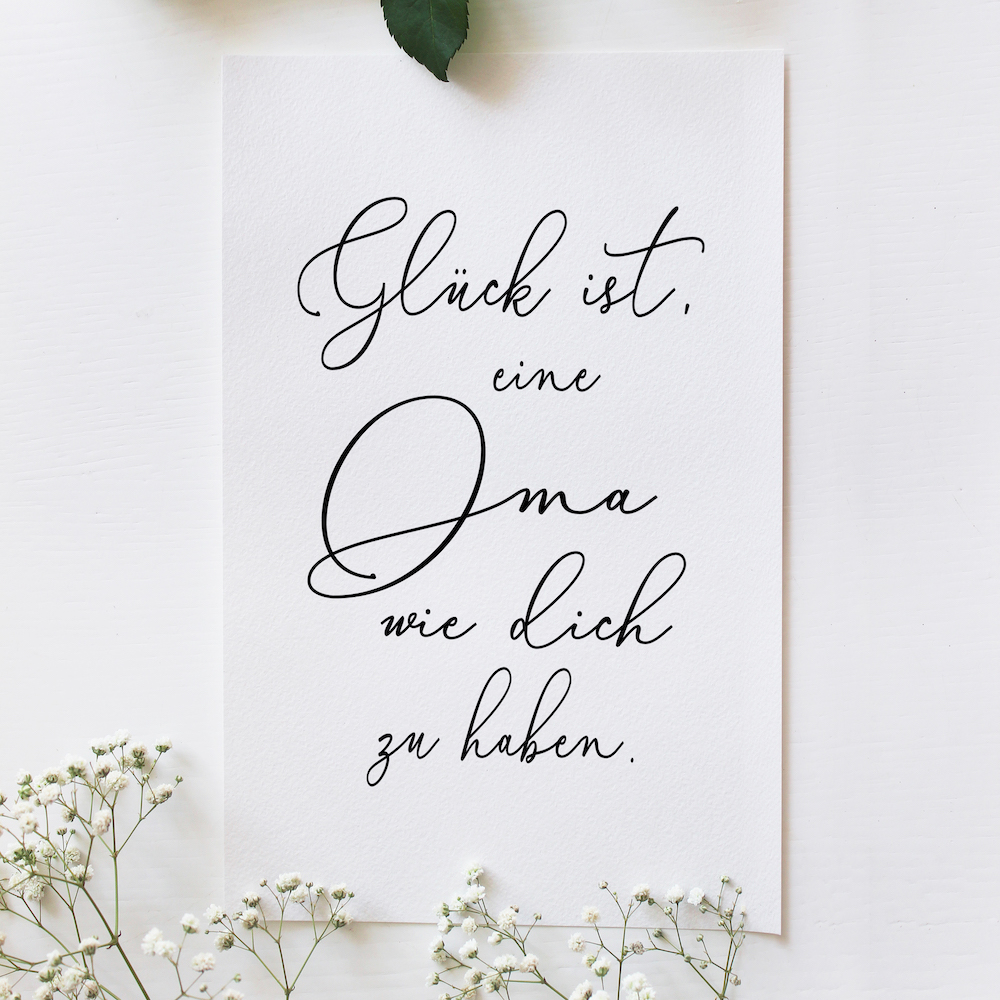 Glück ist,
eine
Oma
wie dich
zu haben.